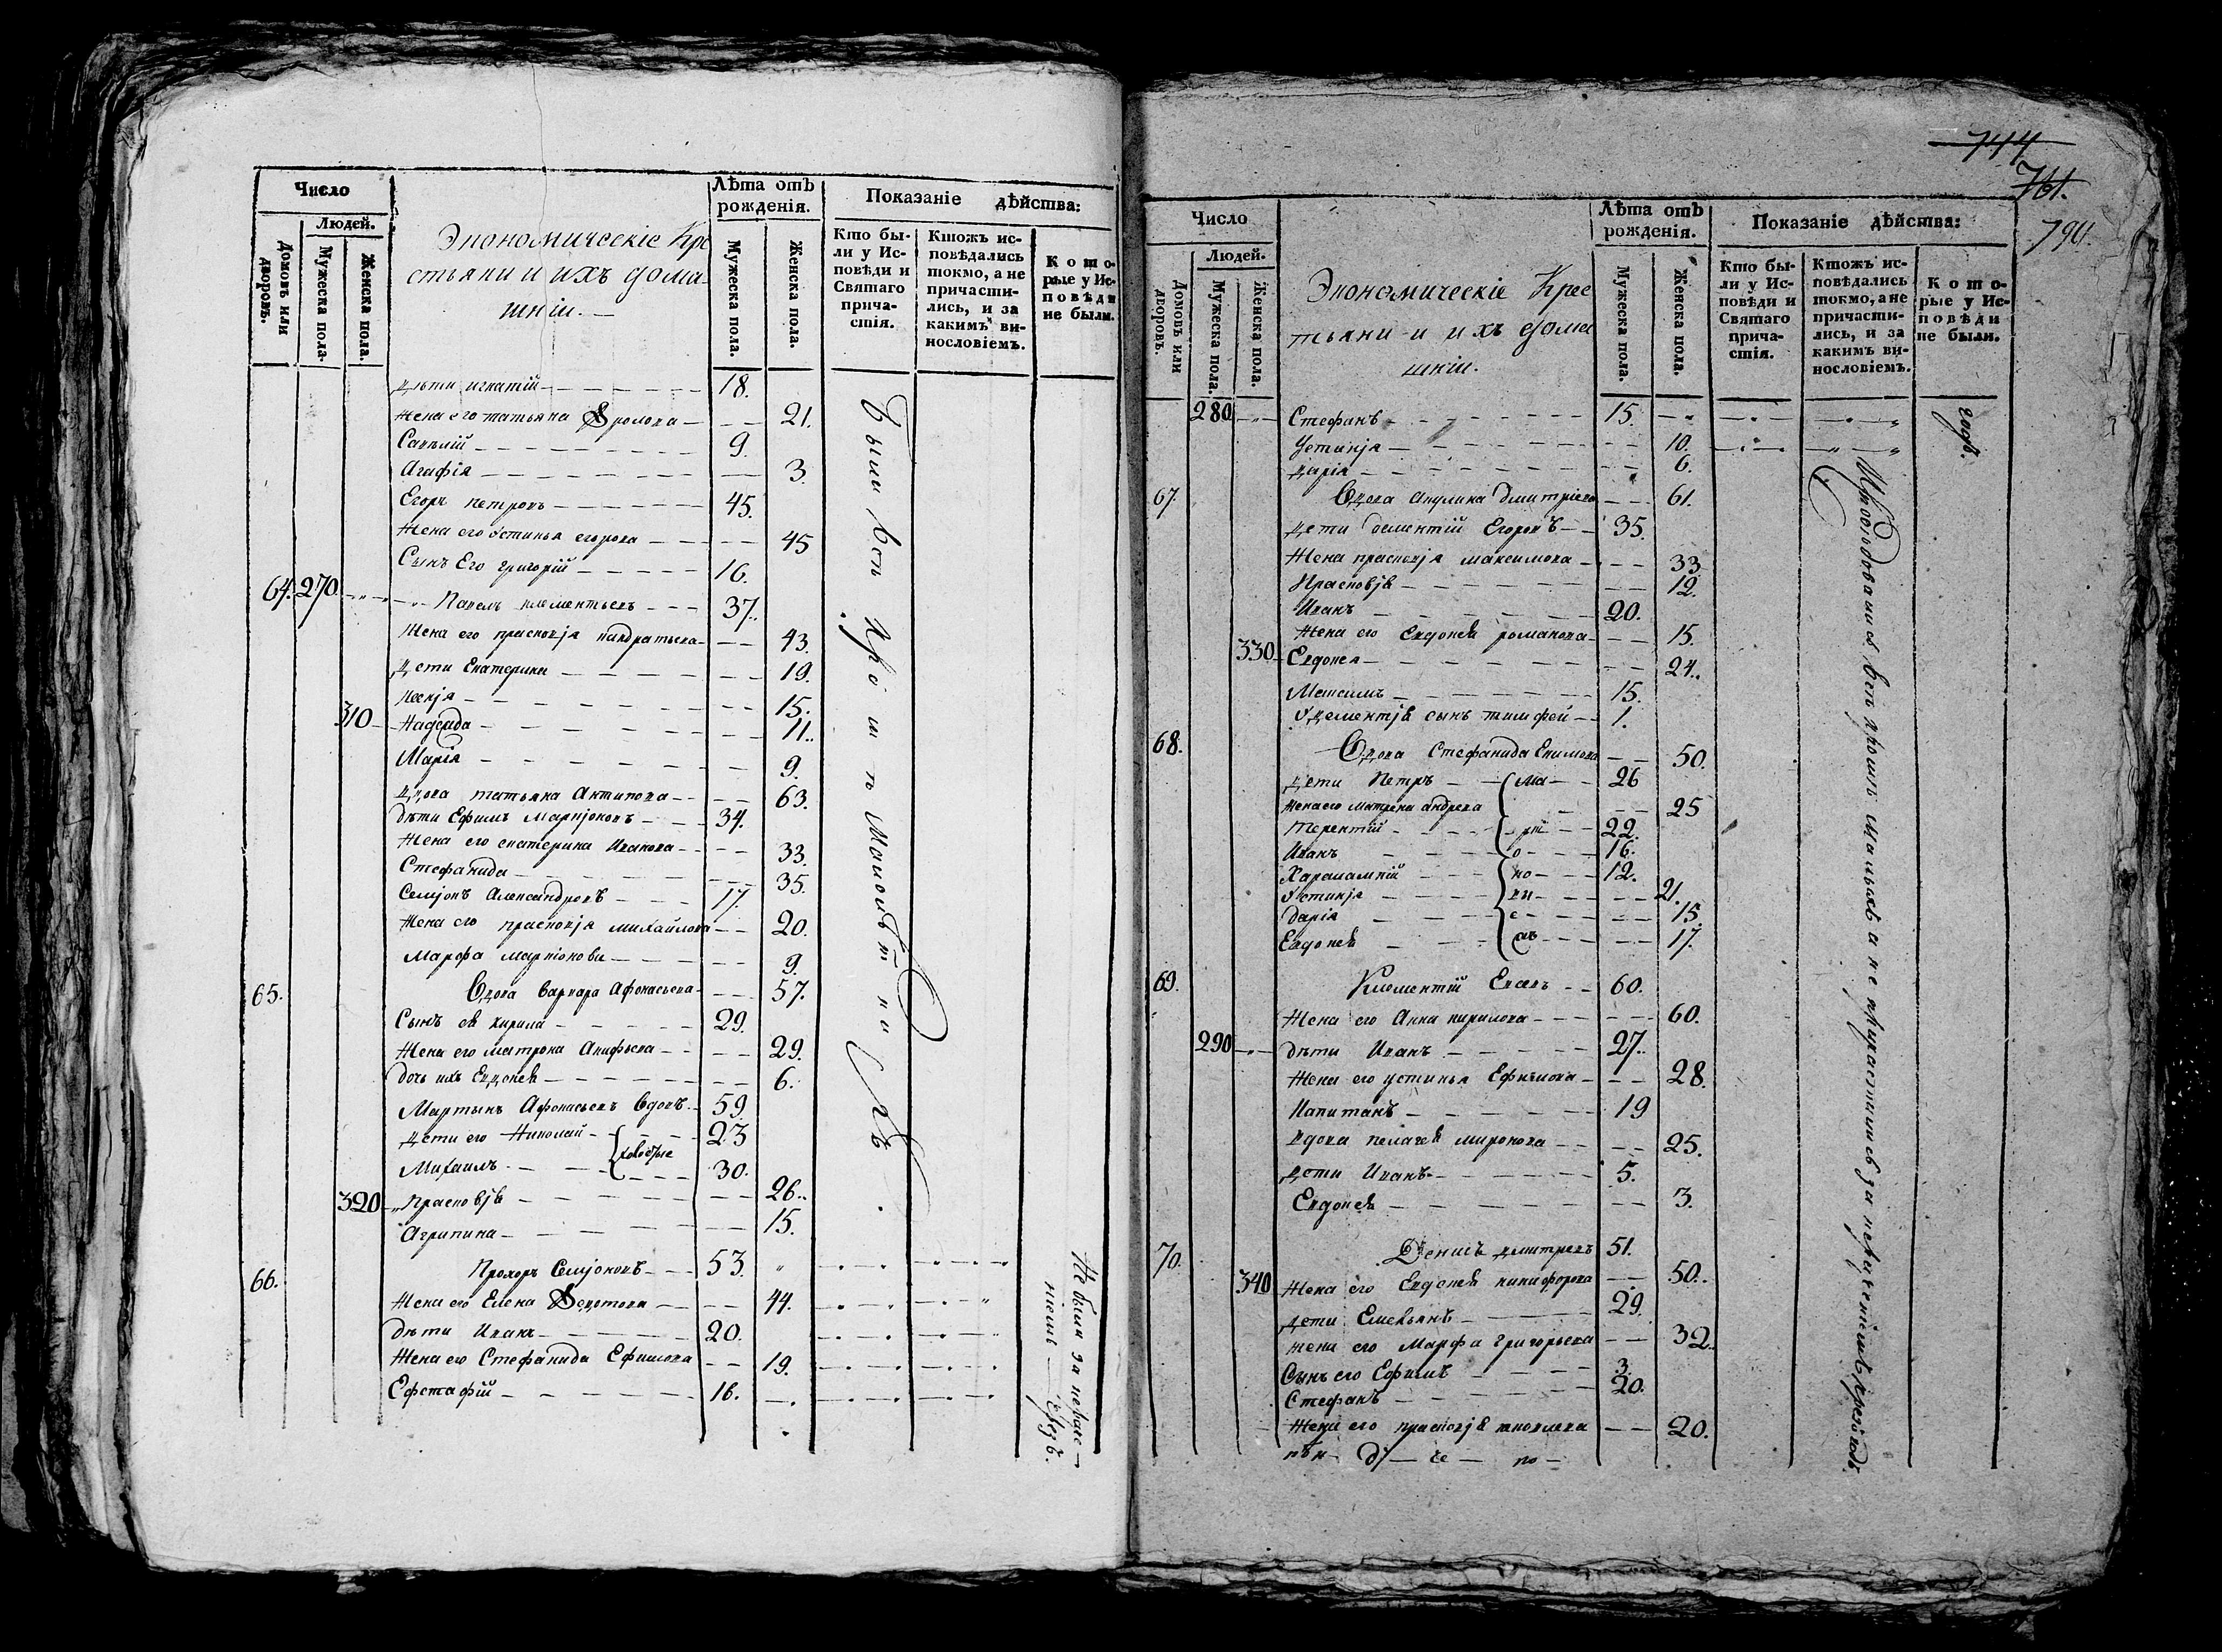 Число
Людей.
Домовъ или дворовъ.
Мужеска пола.
Женска пола.
Экономическіе Кре
стьяни и ихъ дома-
шніи.
Лѣта отъ рожденія.
Мужеска пола.
Женска пола.
Показаніе дѣйства:
Кто бы-
ли у Ис-
повѣди и
Святаго
прича-
стія.
Ктожъ ис-
повѣдались
токмо, а не
причасти-
лись, и за
какимъ ви-
нословіемъ.
Кото-
рые у Ис-
повѣди
не были.
дѣти игнатій 18.
Жена его татьяна Фролова 21.
Савелій 9.
Агафія 3.
Егоръ петровъ 45.
Жена его Устинья егорова 45
Сынъ Его григорій 16.
64. 270 Павелъ клементьевъ 37.
Жена его прасковja кандратьева 43.
дети Екатерина 19.
15.
310 Надежда 11.
Марія 9.
вдова татьяна Антипова 63.
дѣти Ефимъ Маркjоновъ 34.
Жена его екатерина Иванова 33.
Стефанида 35.
Семjонъ Александровъ 17.
Жена его прасковjя михайлова 20.
Марфа маркіонова 9.
65. Вдова варвара Афонасьева 57.
Сынъ ея кирила 29.
Жена его матрона 29.
дочь ихъ Евдокея 6.
Мартынъ Афонасьевъ вдовъ 59.
дети его Николай 23
холостые
Михаилъ 30.
320 Прасковjя 26.
Агрипина 15.
66. Прохоръ Семjоновъ 53.
Жена его Елена Федотова 44.
дѣти Иванъ 20.
Жена его Стефанида Ефимова 19.
Ефстафій 16.
Были всѣ кромѣ малолѣтныхъ
Не были за небре-
ніемъ
744
761.
790.
Число
Людей.
Домовъ или дворовъ.
Мужеска пола.
Женска пола.
Экономическіе Крес
тьяни и ихъ дома
шніи.
Лѣта отъ рожденія.
Мужеска пола.
Женска пола.
Показаніе дѣйства:
Кто бы-
ли у Ис-
повѣди и
Святаго
прича-
стія.
Ктожъ ис-
повѣдались
токмо, а не
причасти-
лись, и за
какимъ ви-
нословіемъ.
Кото-
рые у Ис-
повѣди
не были.
280 Стефанъ 15.
Устинjя 10.
дарія 6.
67. Вдова Акулина дмитріева 61.
дети дементій Егоровъ 35.
Жена прасковjя максимова 33
Прасковjя 12.
Иванъ 20.
Жена его Евдокея романова 15.
330 Евдокея 24.
Максимъ 15.
У дементjя сынъ тимофей 1.
68. Вдова Стефанида Екимова 50.
дети Петръ 26
Жена его матрена андреева 25
Терентій 22.
Иванъ 16.
Харалампій 12.
Устинjя 21.
дарія 15.
Евдокея 17.
69. Клементій 60.
Жена его Анна кирилова 60.
290 дѣти Иванъ 27.
Жена его устинья Ефимова 28.
Капитанъ 19
вдова пелагея миронова 25.
дети Иванъ 5.
Евдокея 3.
70. Денисъ дмитревъ 51.
340 Жена его Евдокея никифорова 50.
дети Емельянъ 29.
жена его Марфа григорьева 32.
Сынъ его Ефимъ 3.
Стефанъ 20.
Жена его прасковjя яковлева 20.
годъ.
Исповѣдовались всѣ кромѣ малыхъ а не причастились за небреженіемъ